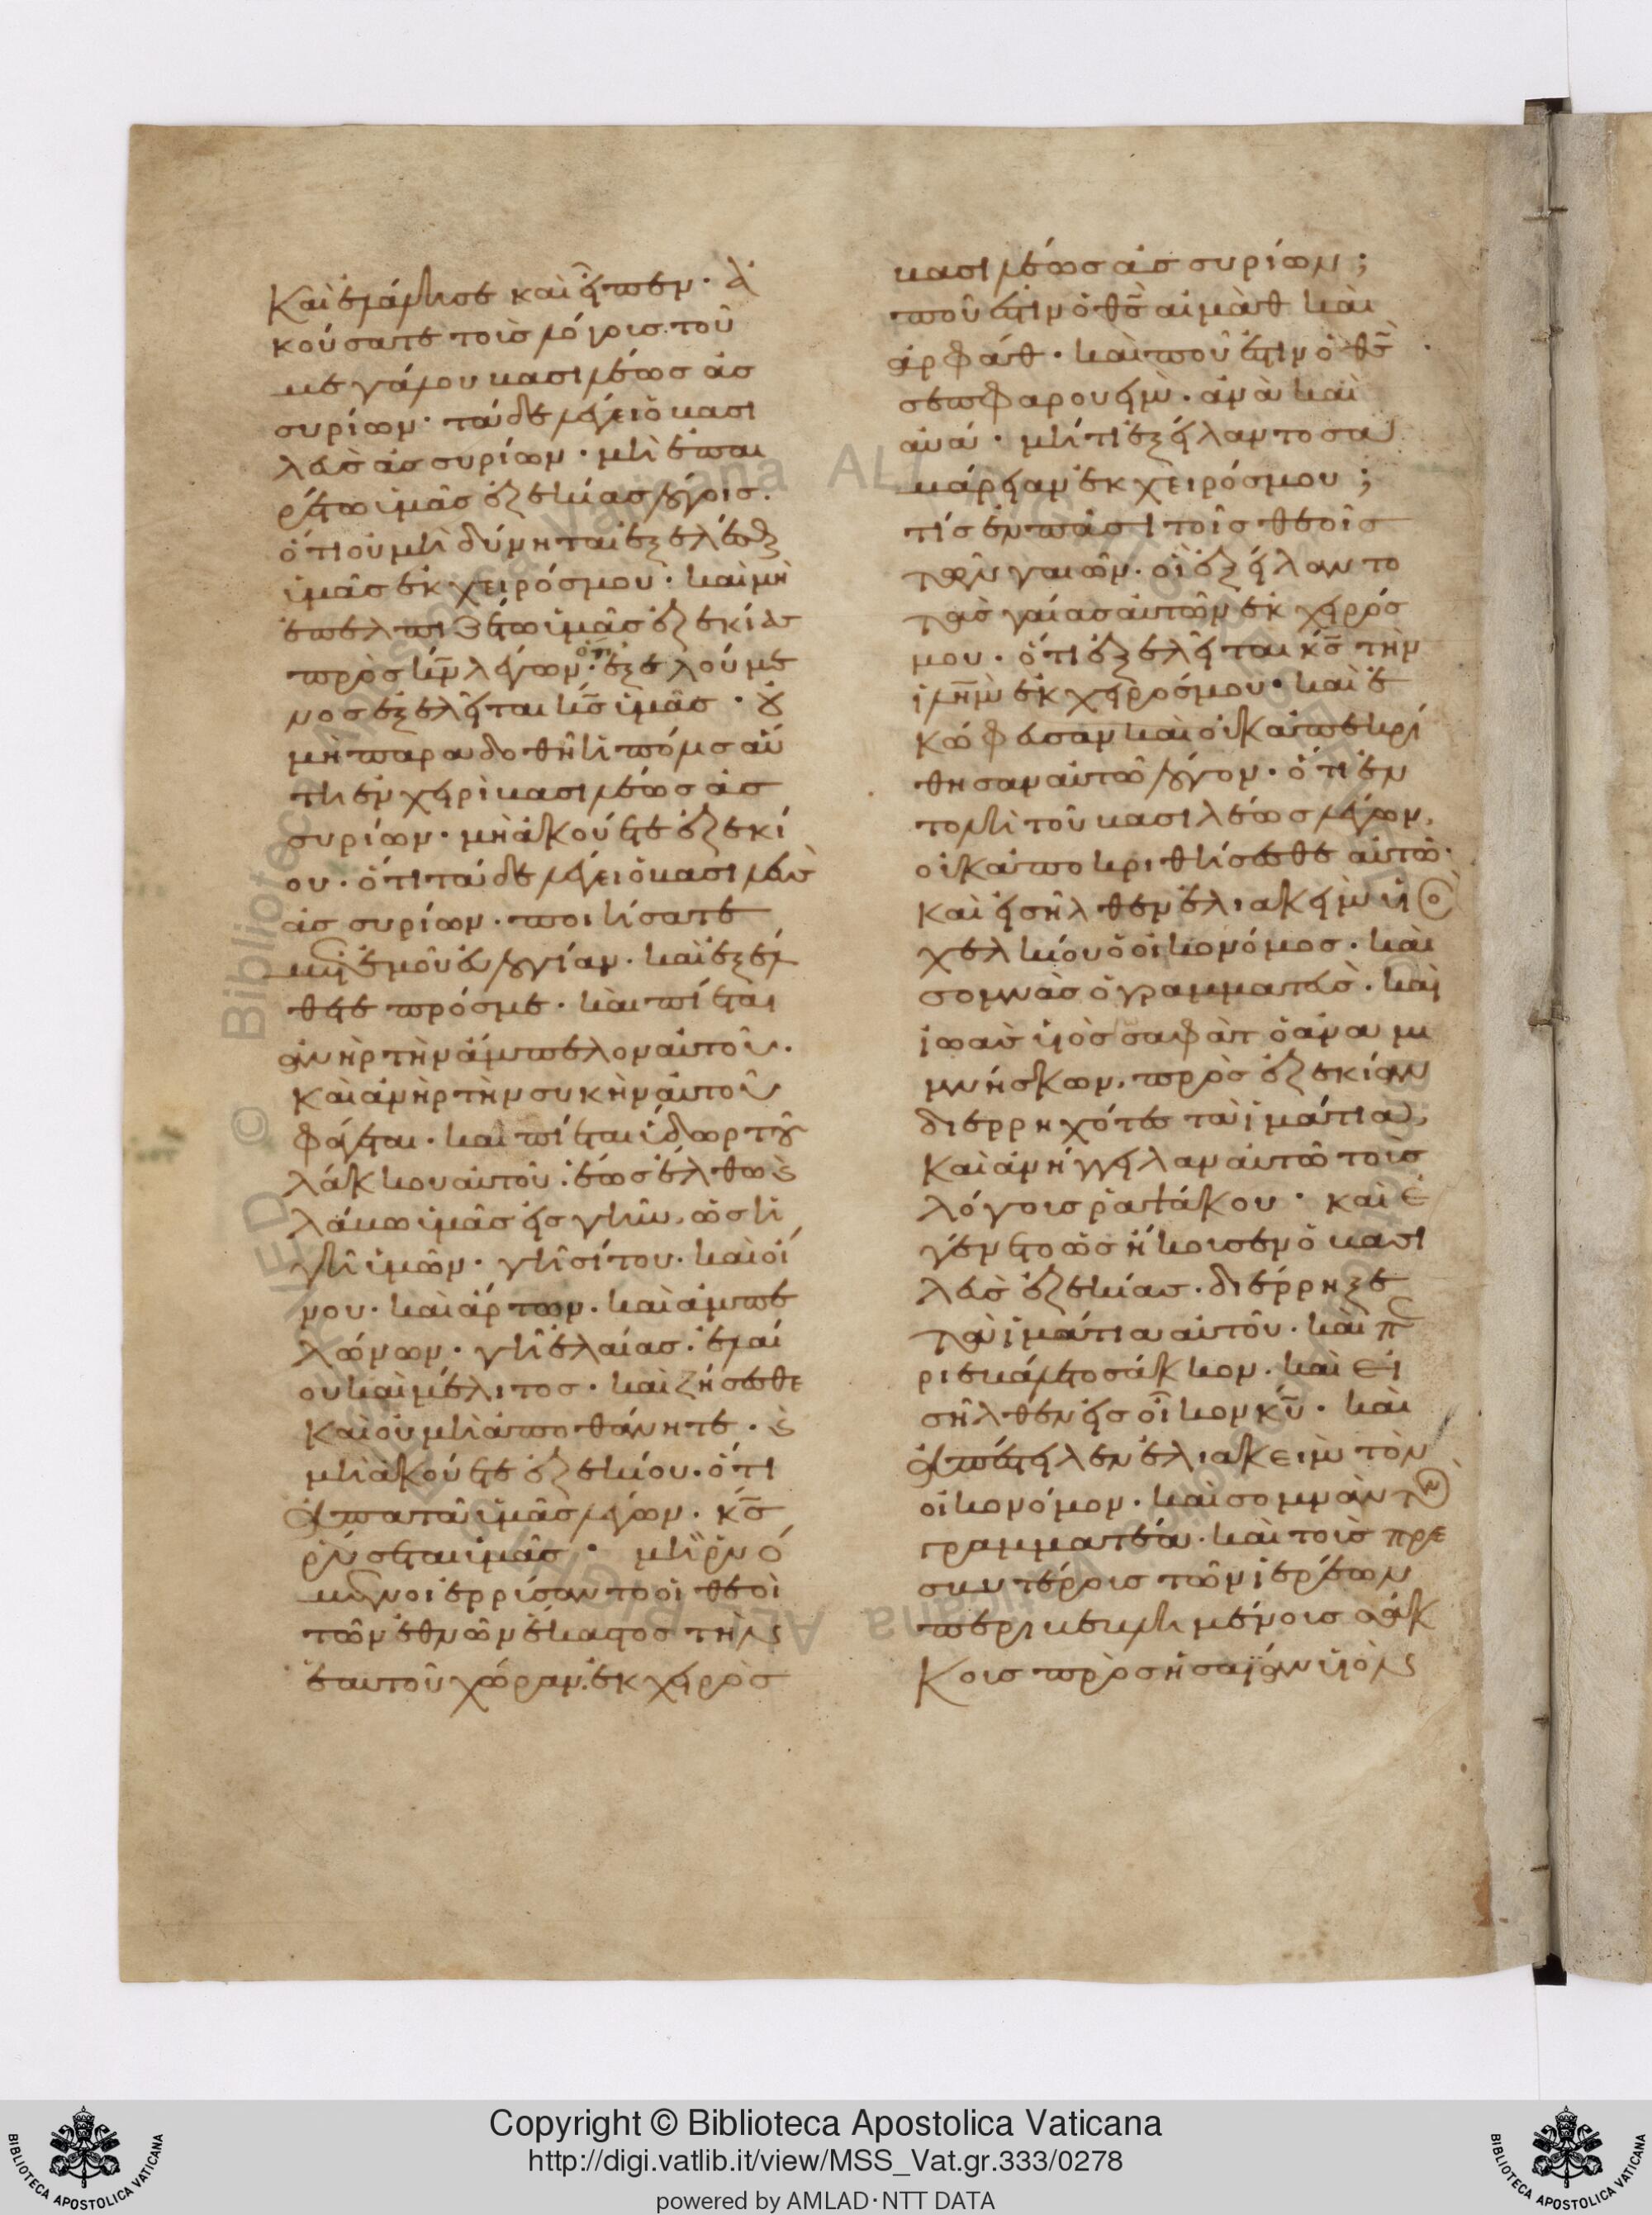 Καὶ ἐλάλησε καὶ εἶπεν· ἀ
κούσατε τοὺς λόγους τοῦ
μεγάλου βασιλέως ἀσ
συρίων· τάδε λέγει ὁ βασι
λεὺς ἀσσυρίων· μὴ ἐπαι
ρέτω ὑμᾶς ἐζεκίας λόγοις.
ὅτι οὐ μὴ δύνηται ἐξελέσθαι
ὑμᾶς ἐκ χειρός μου· καὶ μὴ
ἐπελπιζέτω ὑμᾶς ἐζεκίας
πρὸς κν λέγων· ὅτι ἐξελούμε
νος ἐξελεῖται κς ὑμᾶς· οὐ
μὴ παραδοθῆ ἡ πόλις αὕ
τη ἐν χειρὶ βασιλέως ἀσ
συρίων· μὴ ἀκούετε ἐζεκί
ου· ὅτι τάδε λέγει ὁ βασιλεὺς
ἀσσυρίων· ποιήσατε
μετ' ἐμοῦ εὐλογίαν· καὶ ἐξέλ
θετε πρός με· καὶ πίεται
ἀνὴρ τὴν ἄμπελον αὐτοῦ·
καὶ ἀνὴρ τὴν συκὴν αὐτοῦ
φάγεται· καὶ πίεται ὕδωρ τοῦ
λάκκου αὐτοῦ· ἕως ἔλθω καὶ
λάβω ὑμᾶς εἰς γῆν, ὡς ἡ
γῆ ὑμῶν· γῆ σίτου· καὶ οἴ
νου· καὶ ἄρτων· καὶ ἀμπε
λώνων· γῆ ἐλαίας· ἐλαί
ου καὶ μέλιτος· καὶ ζήσεσθε
καὶ οὐ μὴ ἀποθάνητε· καὶ
μὴ ἀκούετε ἐζεκίου· ὅτι
ἀπατᾶ ὑμᾶς λέγων· κς
ῥύσεται ὑμᾶς· μὴ ῥυό
μενοι ἐρρύσαντο οἱ θεοὶ
τῶν ἐθνῶν ἕκαστος τὴν
ἑαυτοῦ χώραν. ἐκ χειρὸς
βασιλέως ἀσσυρίων;
ποῦ ἐστιν ὁ θς αἱμὰθ καὶ
ἀρφάθ· καὶ ποῦ ἐστιν ὁ θς
σεπφαρουείμ· ἀνὰ καὶ
αὐά· μὴ ὅτι ἐξείλαντο σα
μάρειαν ἐκ χειρός μου;
τίς ἐν πᾶσι τοῖς θεοῖς
τῶν γαιῶν. οἳ ἐξείλαντο
τὰς γαίας αὐτῶν ἐκ χειρός
μου· ὅτι ἐξελεῖται κς τὴν
ιλημ ἐκ χειρός μου· καὶ ἐ
κώφευσαν καὶ οὐκ ἀπεκρί
θησαν αὐτῶ λόγον· ὅτι ἐν
τολὴ τοῦ βασιλέως λέγων,
οὐκ ἀποκριθήσεσθε αὐτῶ·
καὶ εἰσῆλθεν ἐλιακεὶμ υἱὸς
χελκίου ὁ οἰκονόμος· καὶ
σομνὰς ὁ γραμματεὺς· καὶ
ἰωὰς υἱὸς σαφὰτ ὁ ἀναμι
μνήσκων, πρὸς ἐζεκίαν
διερρηχότες τὰ ἱμάτια,
καὶ ἀνήγγειλαν αὐτῶ τοὺς
λόγους ῥαψάκου· καὶ ἐ
γένετο ὡς ἤκουσεν ὁ βασι
λεὺς ἐζεκίας· διέρρηξε
τὰ ἱμάτια αὐτοῦ· καὶ πε
ριεβάλετο σάκκον· καὶ εἰ
σῆλθεν εἰς οἶκον κυ· καὶ
ἀπέστειλεν ἐλιακεὶμ τὸν
οἰκονόμον· καὶ σομνὰν τὸν
γραμματέα· καὶ τοὺς πρε
σβυτέρους τῶν ἱερέων
περιβεβλημένους σάκ
κους πρὸς ἡσαΐαν υἱὸν
Copyright © Biblioteca Apostolica Vaticana
http://digi.vatlib.it/view/MSS_Vat.gr.333/0278
powered by AMLAD·NTT DATA
BIBLIOTECA APOSTOLICA VATICANA
BIBLIOTECA APOSTOLICA VATICANA